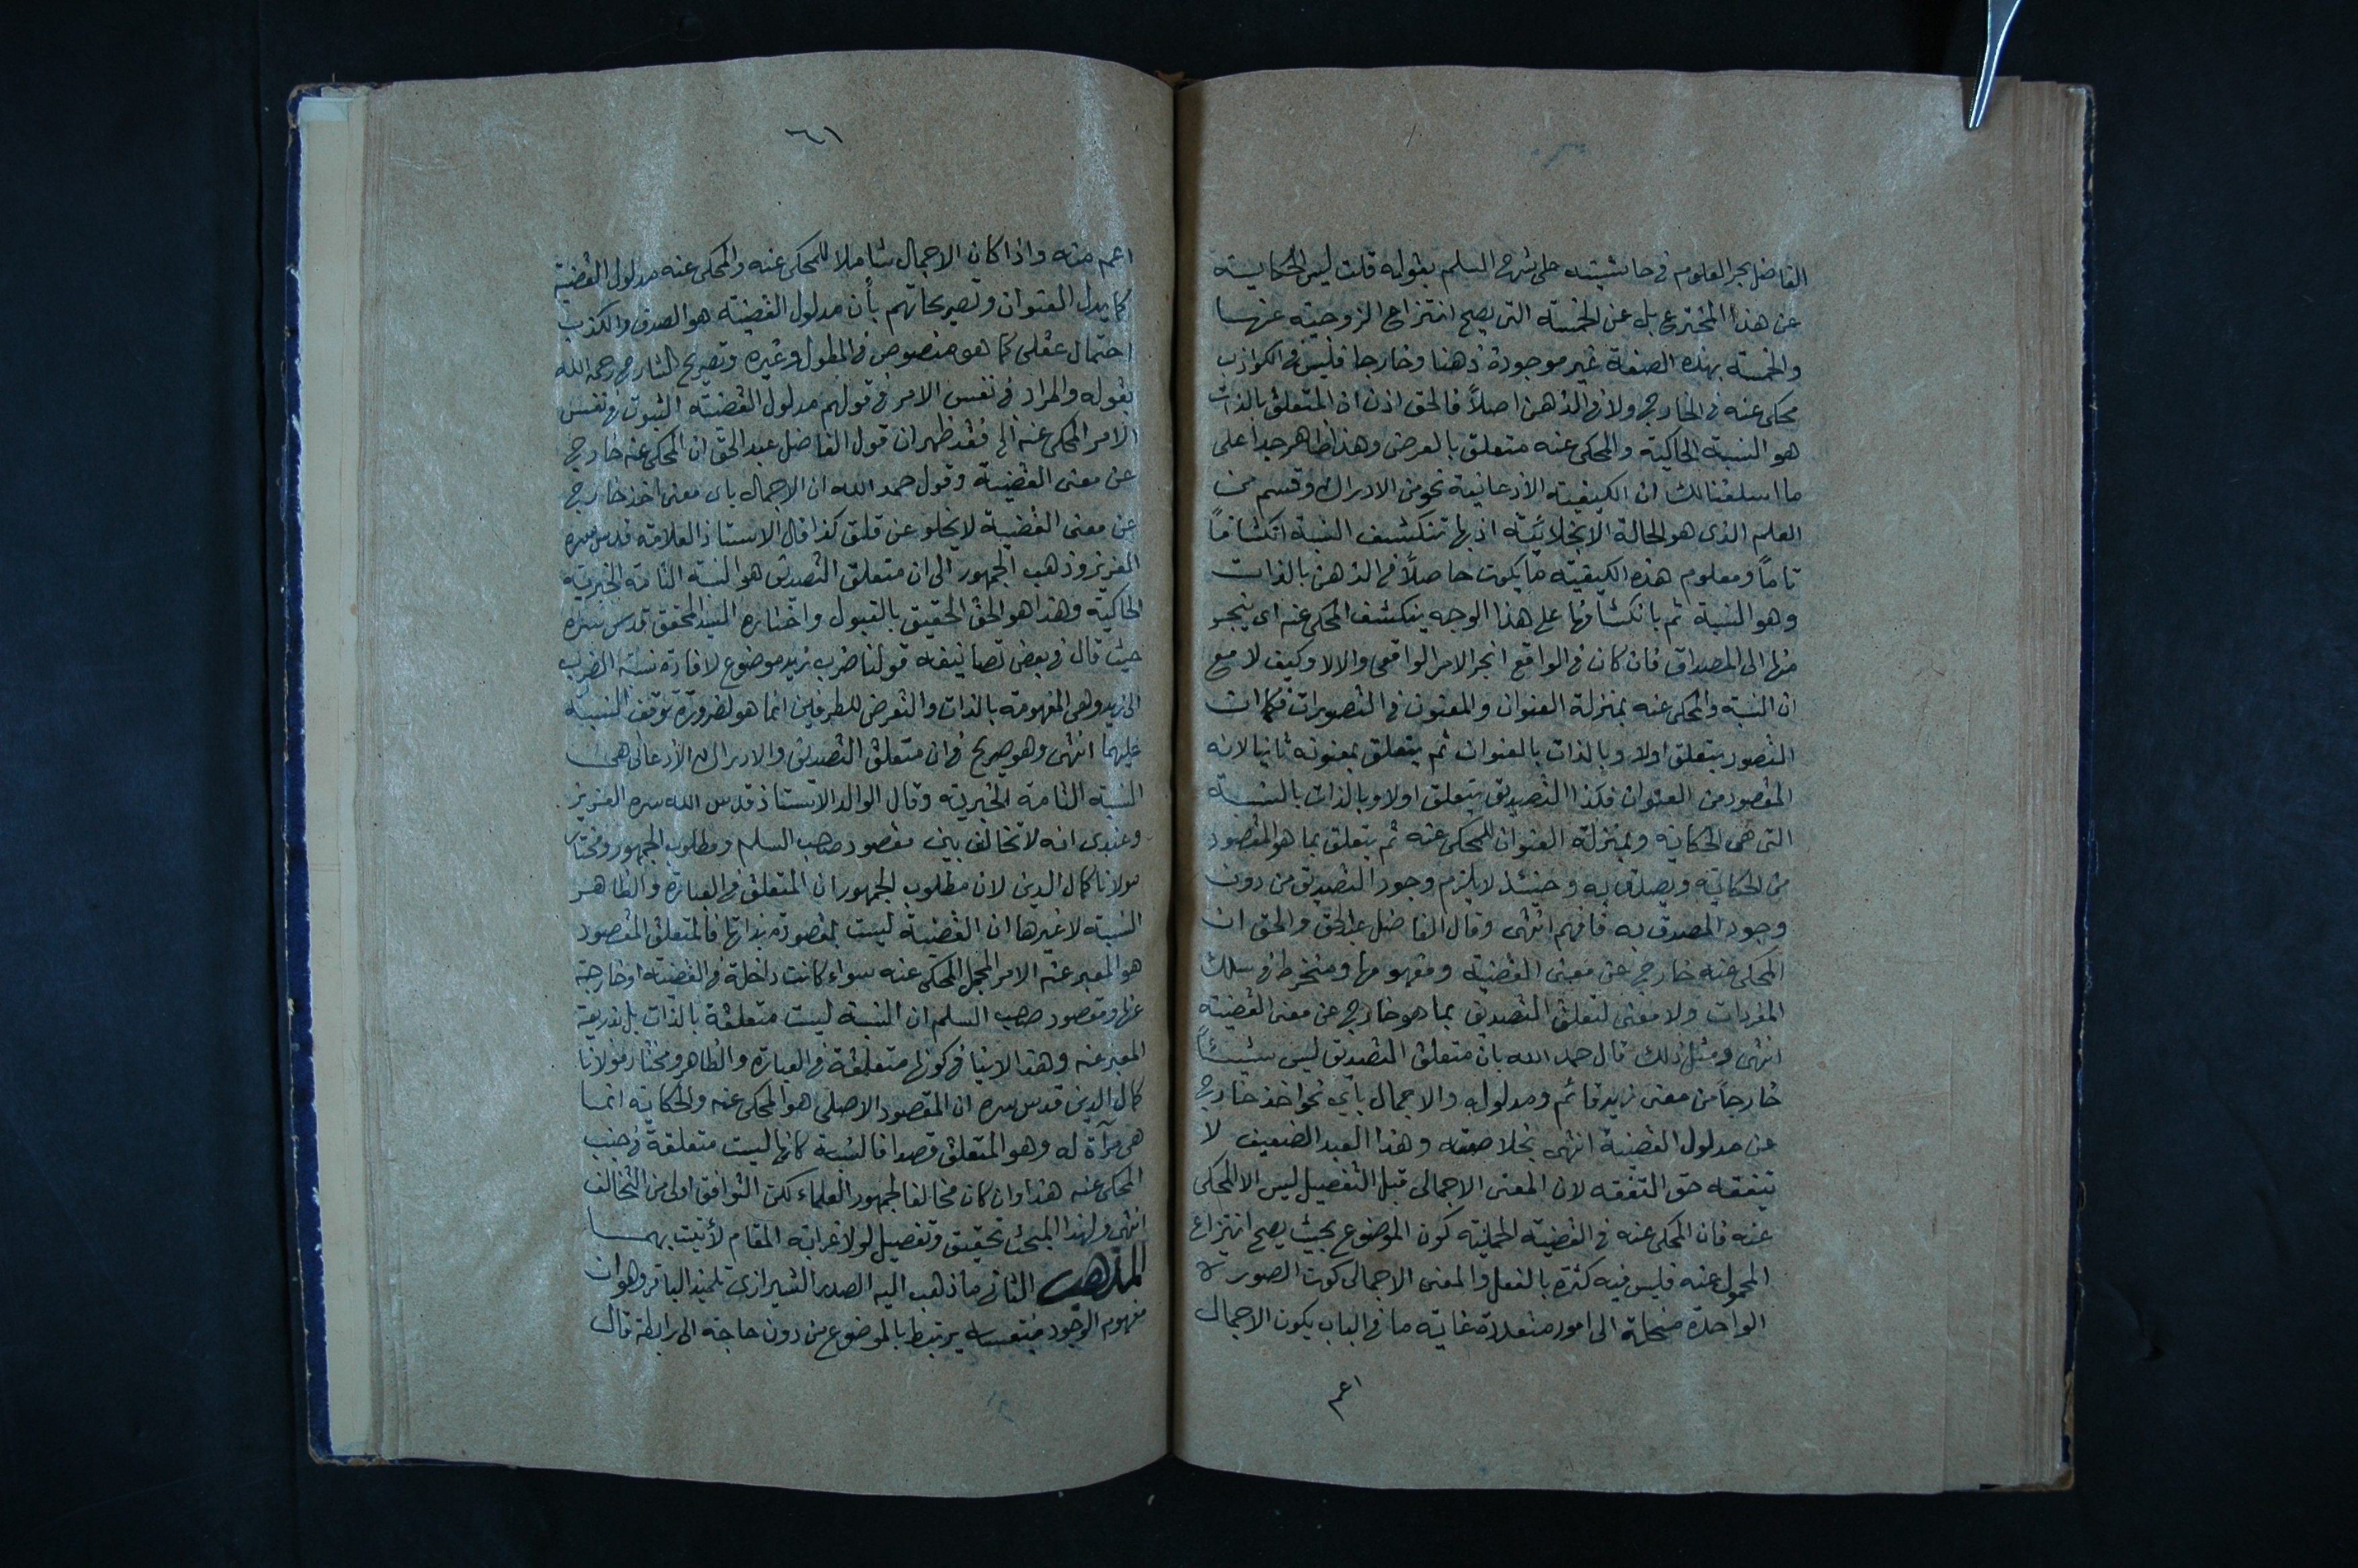 الفاضل بحر العلوم فى حاشيته على شرح السلم بقوله قلت ليس الحكاية
عن هذا المخترع بل عن الخمسة التى يصح انتزاع الزوجية عنها
والخمسة بهذه الصفة غير موجودة ذهنا وخارجا فليس فى الكواذب
محكى عنه فى الخارج ولا فى الذهن اصلاً فالحق اذن ان المتعلق بالذات
هو النسبة الحاكية والمحكى عنه متعلق بالعرض وهذا ظاهر جدا على
ما اسلفنا لك ان الكيفية الاذعانية نحو من الادراك وقسم من
العلم الذى هو الحالة الانجلائية اذ بها تنكشف النسبة انكشافاً
تاماً ومعلوم هذه الكيفية ما يكون حاصلاً فى الذهن بالذات
وهو النسبة ثم بانكشافها على هذا الوجه ينكشف المحكى عنه اى ينجر
منها الى المصداق فان كان فى الواقع انجر الامر الواقعى والا لا وكيف لا مع
ان النسبة والمحكى عنه بمنزلة العنوان والمعنون فى التصورات فكما ان
التصور يتعلق اولا وبالذات بالعنوان ثم يتعلق بمعنونه ثانيا لانه
المقصود من العنوان فكذا التصديق يتعلق اولا وبالذات بالنسبة
التى هى الحكاية وبمنزلة العنوان للمحكى عنه ثم يتعلق بما هو المقصود
من الحكاية ويصدق به وحينئذ لا يلزم وجود التصديق من دون
وجود المصدق به فافهم انتهى وقال الفاضل عبد الحق والحق ان
المحكى عنه خارج عن معنى القضية ومفهومها ومنخرط فى سلك
المفردات ولا معنى لتعلق التصديق بما هو خارج عن معنى القضية
انتهى ومثل ذلك قال حمد الله بان متعلق التصديق ليس شيئاً
خارجاً من معنى زيد قائم ومدلوله والاجمال باى نحو اخذ خارج
عن مدلول القضية انتهى بخلاصته وهذا العبد الضعيف لا
يتفقه حق التفقه لان المعنى الاجمالى قبل التفصيل ليس الا المحكى
عنه فان المحكى عنه فى القضية الحملية كون الموضوع بحيث يصح انتزاع
المحمول عنه فليس فيه كثرة بالفعل والمعنى الاجمالى كون الصورة
الواحدة منحلة الى امور متعددة غاية ما فى الباب يكون الاجمال
اعم
٦١
اعم منه واذا كان الاجمال شاملا للمحكى عنه والمحكى عنه مدلول القضية
كما يدل العنوان وتصريحاتهم بأن مدلول القضية هو الصدق والكذب
احتمال عقلى كما هو منصوص فى المطول وغيره وتصريح الشارح رحمه الله
بقوله والمراد فى نفس الامر فى قولهم مدلول القضية الثبوت فى نفس
الامر المحكى عنه الخ فقد ظهر ان قول الفاضل عبد الحق ان المحكى عنه خارج
عن معنى القضية وقول حمد الله ان الاجمال باى معنى اخذ خارج
عن معنى القضية لا يخلو عن قلق كذا قال الاستاذ العلامة قدس سره
العزيز وذهب الجمهور الى ان متعلق التصديق هو النسبة التامة الخبرية
الحاكية وهذا هو الحق الحقيق بالقبول واختاره السيد المحقق قدس سره
حيث قال فى بعض تصانيفه قولنا ضرب زيد موضوع لافادة نسبة الضرب
الى زيد وهى المفهومة بالذات والتعرض للطرفين انما هو لضرورة توقف النسبة
عليهما انتهى وهو صريح فى ان متعلق التصديق والادراك الاذعانى هى
النسبة التامة الخبرية وقال الوالد الاستاذ قدس الله سره العزيز
وعندى انه لا تخالف بين مقصود صاحب السلم ومطلوب الجمهور ومختار
مولانا كمال الدين لان مطلوب الجمهور ان المتعلق فى العبارة والظاهر
النسبة لا غيرها ان القضية ليست بمقصودة بذاتها فالمتعلق المقصود
هو المعبر عنه الامر المجمل المحكى عنه سواء كانت داخلة فى القضية او خارجة
عنها ومقصود صاحب السلم ان النسبة ليست متعلقة بالذات بل بذريعة
المعبر عنه وهذا لا ينافى كونها متعلقة فى العبارة والظاهر ومختار مولانا
كمال الدين قدس سره ان المقصود الاصلى هو المحكى عنه والحكاية انما
هى مرآة له وهو المتعلق قصدا فالنسبة كانها ليست متعلقة فى جنب
المحكى عنه هذا وان كان مخالفا لجمهور العلماء لكن التوافق اولى من التخالف
انتهى ولهذا المبحث تحقيق وتفصيل لولا غرابة المقام لأتيت بهما
المذهب الثانى ما ذهب اليه الصدر الشيرازى تلميذ الباقر وهو ان
مفهوم الوجود بنفسه يرتبط بالموضوع من دون حاجة الى رابطة قال